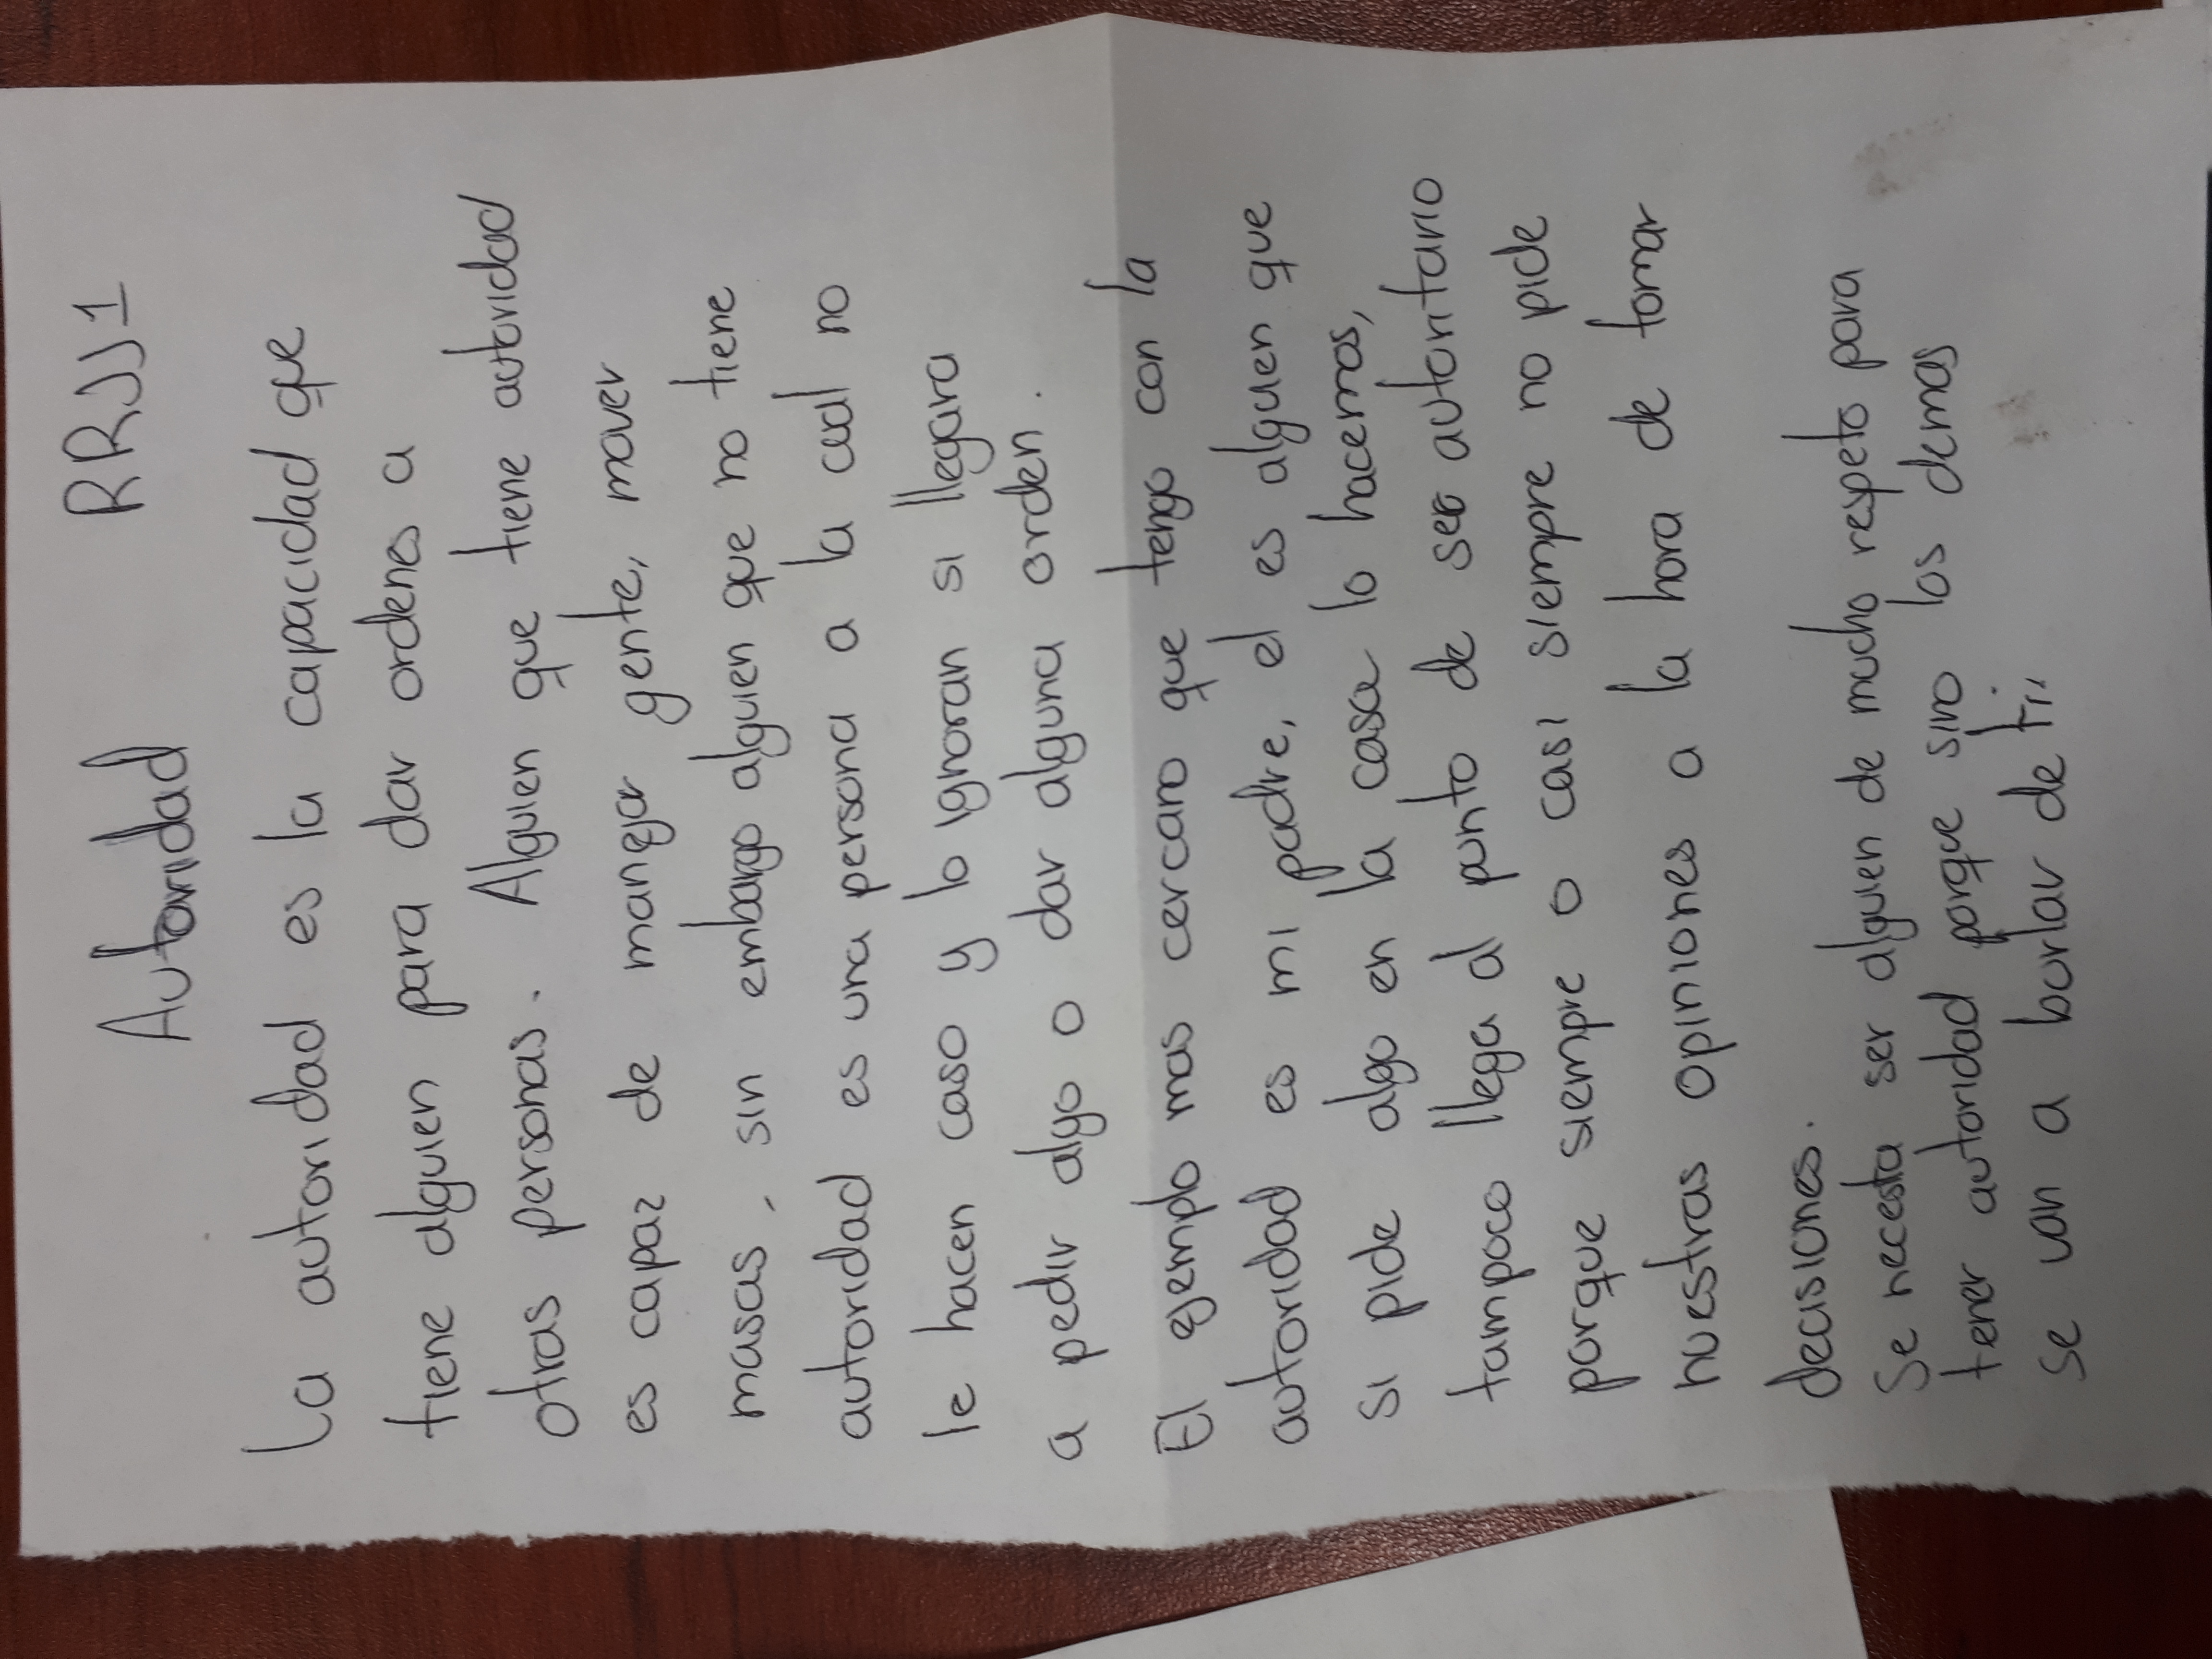 RRJJ1
Autoridad
La autoridad es la capacidad que
tiene alguien para dar ordenes a
otras personas. Alguien que tiene autoridad
es capaz de manejar gente, mover
masas, sin embargo alguien que no tiene
autoridad es una persona a la cual no
le hacen caso y lo ignoran si llegara
a pedir algo o dar alguna orden.
El ejemplo mas cercano que tengo con la
autoridad es mi padre, el es alguien que
si pide algo en la casa lo hacemos,
tampoco llega al punto de ser autoritario
porque siempre o casi siempre no pide
nuestras opiniones a la hora de tomar
decisiones.
Se necesta ser alguien de mucho respeto para
tener autoridad porque sino los demas
se van a burlar de ti.